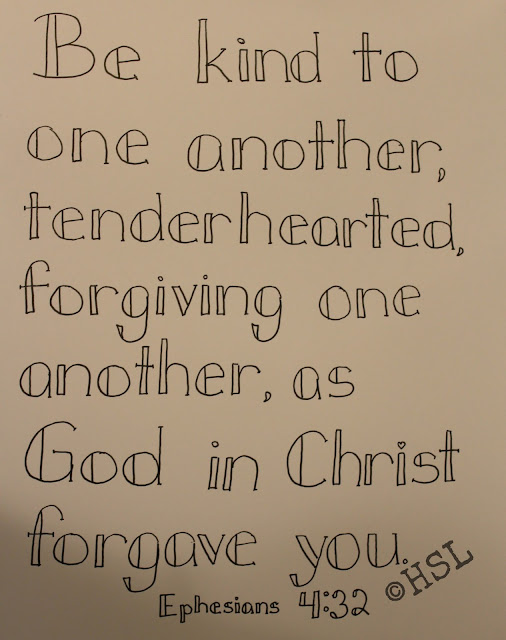 Be kind to
one another,
tenderhearted,
forgiving one
another, as
God in Christ
forgave you.
©HSL
Ephesians 4:32